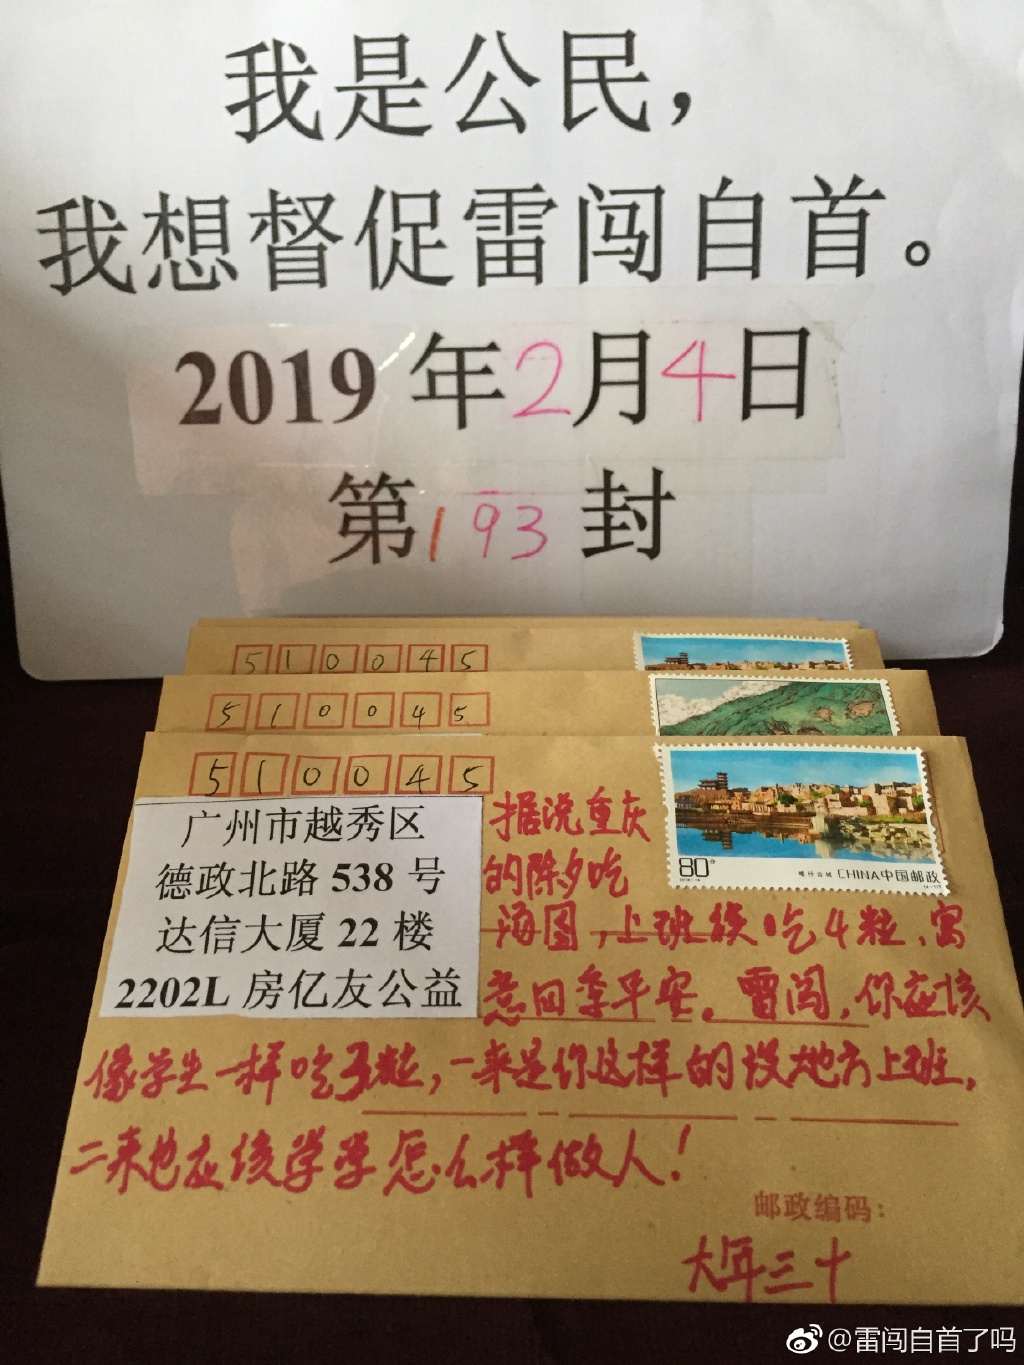 我是公民，
我想督促雷闯自首。
2019年2月4日
第193封
510045
510045
510045
广州市越秀区
德政北路 538 号
达信大厦 22 楼
2202L 房亿友公益
80分
喀什古城 CHINA中国邮政
据说重庆
的除夕吃
汤圆，上班族吃4粒，寓
意四季平安。雷闯，你应该
像学生一样吃3粒，一来是你这样的没地方上班，
二来也应该学学怎么样做人！
邮政编码：
大年三十
@雷闯自首了吗